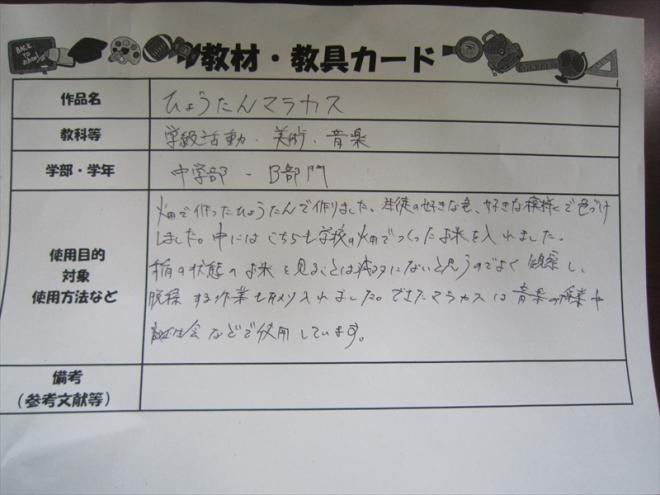 BACK TO School
教材・教具カード
作品名
ひょうたんマラカス
教科等
学級活動・美術・音楽
学部・学年
中学部 - B部門
使用目的
対象
使用方法など
畑で作ったひょうたんで作りました。生徒の好きな色、好きな模様で色づけ
しました。中にはこちらも学校の畑でつくったお米を入れました。
稲の状態のお米を見ることは滅多にないと思うのでよく観察し、
脱穀する作業も取り入れました。できたマラカスは音楽の授業や
誕生会などで使用しています。
備考
(参考文献等)